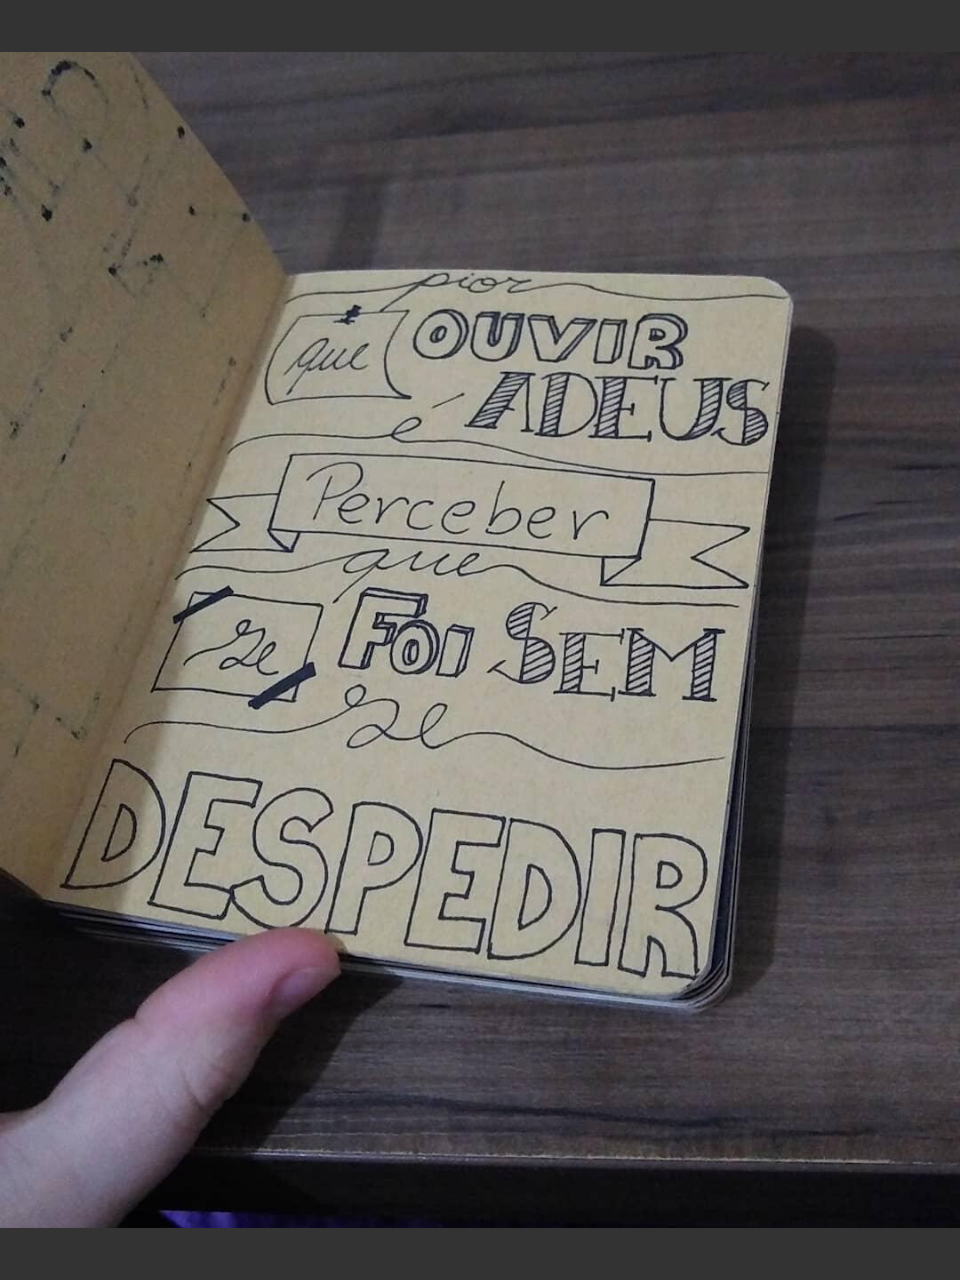 pior
que OUVIR
ADEUS
é
Perceber
que
se FOI SEM
se
DESPEDIR